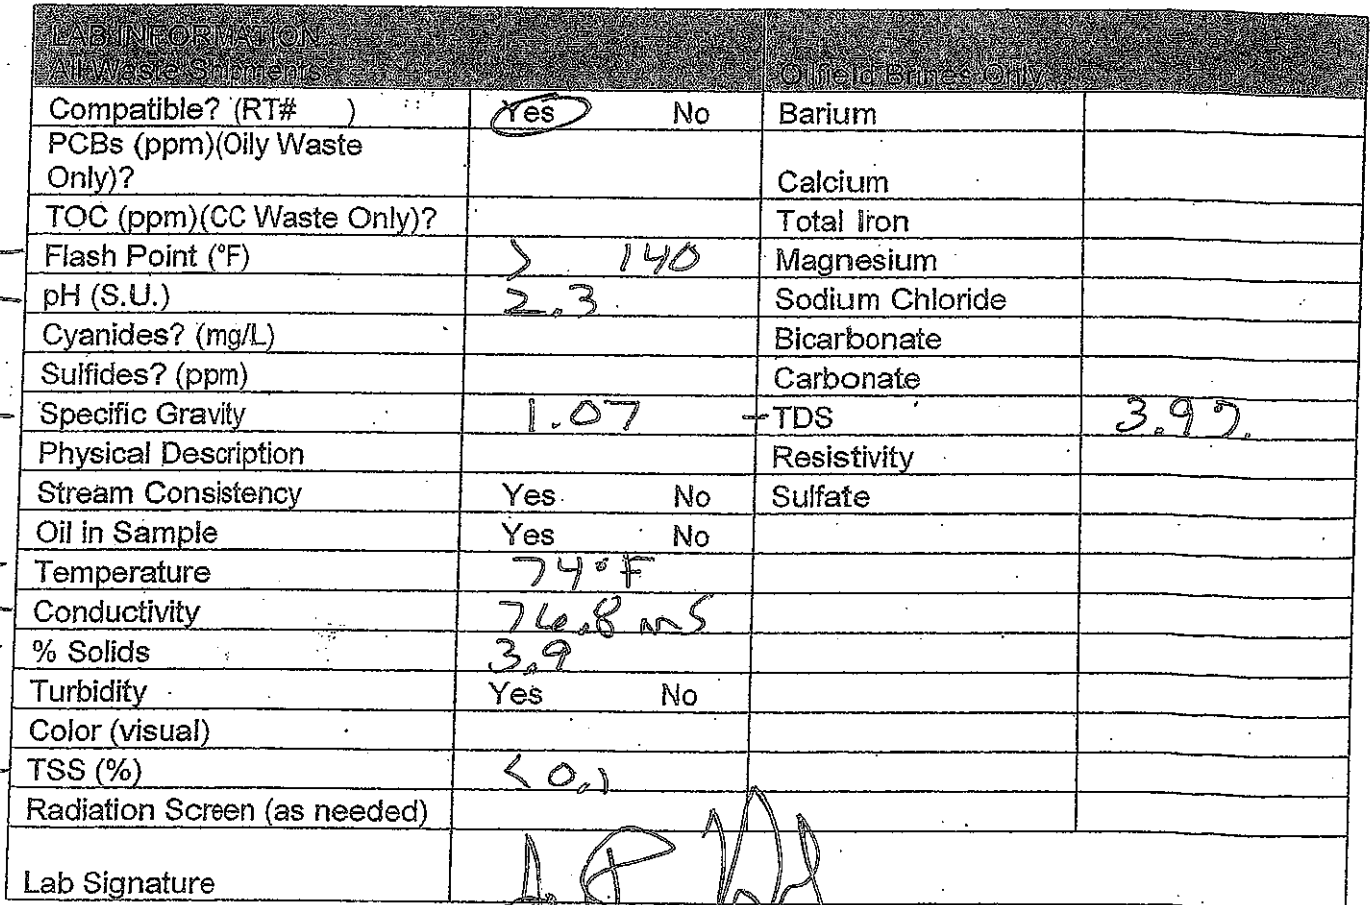 LAB INFORMATION
All Waste Shipments Oilfield Brines Only
Compatible? (RT# ) Yes No Barium
PCBs (ppm)(Oily Waste
Only)? Calcium
TOC (ppm)(CC Waste Only)? Total Iron
Flash Point (°F) > 140 Magnesium
pH (S.U.) 2.3 Sodium Chloride
Cyanides? (mg/L) Bicarbonate
Sulfides? (ppm) Carbonate
Specific Gravity 1.07 TDS 3.9%
Physical Description Resistivity
Stream Consistency Yes No Sulfate
Oil in Sample Yes No
Temperature 74°F
Conductivity 76.8 mS
% Solids 3.9
Turbidity Yes No
Color (visual)
TSS (%) <0.1
Radiation Screen (as needed)
Lab Signature